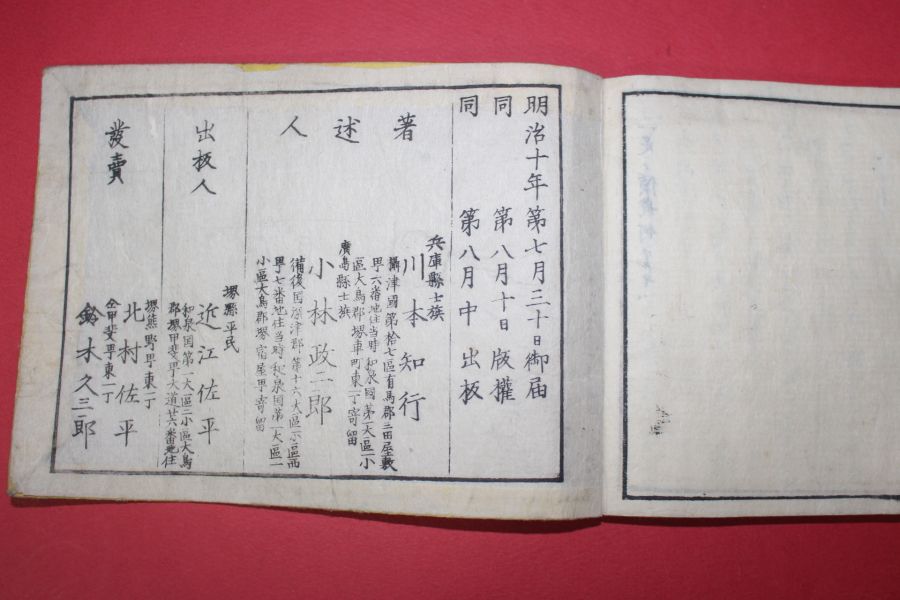 明治十年第七月三十日御届
同 第八月十日 版權
同 第八月中 出板
著述人
兵庫縣士族
川本知行
攝津國第拾七區有馬郡三田屋敷
甼六番地住当時和泉國第一大區小
區大鳥郡堺車町東一丁寄留
廣島縣士族
小林政二郎
備後国深津郡第十六大區小區西
甼七番地住当時和泉国第一大區一
小區大鳥郡堺宿屋甼寄留
出板人
堺縣平民
近江佐平
和泉国第一大區二小區大鳥
郡堺甲斐甼大道廿六番地住
發賣
堺熊野甼東一丁
北村佐平
仝甲斐甼東一丁
鈴木久三郎